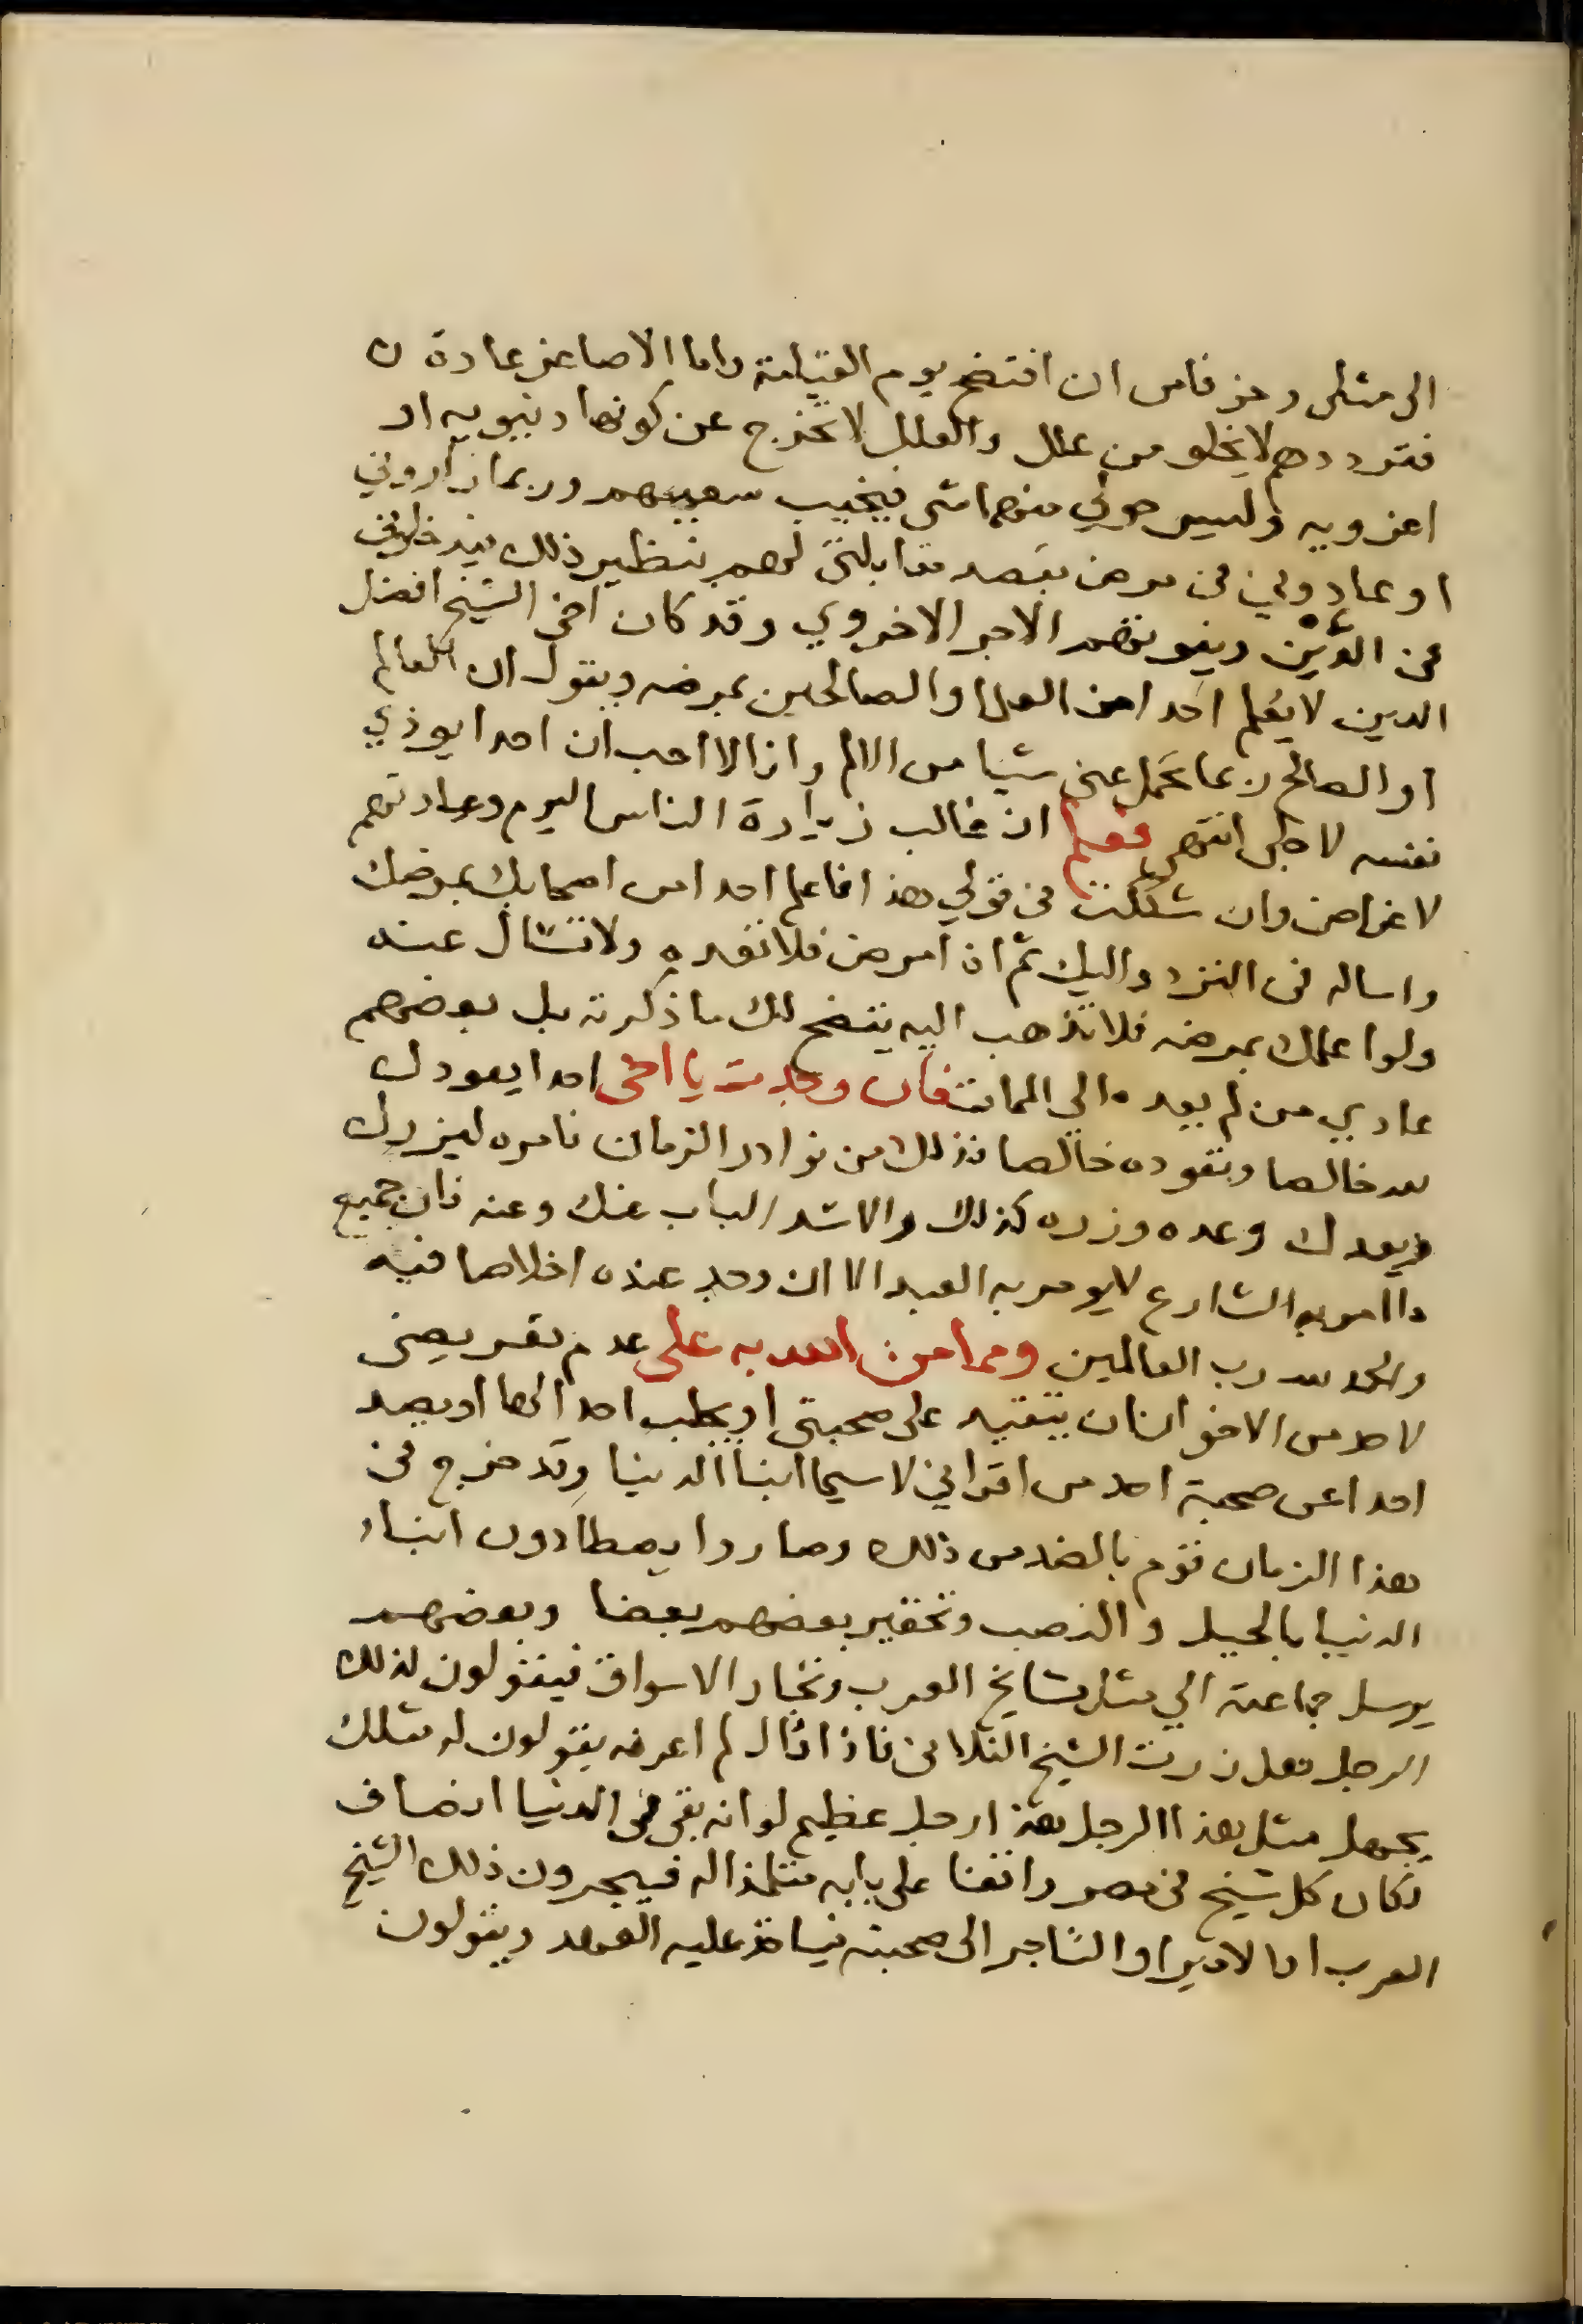 الى مثلى وخوفا من ان افتضح يوم القيامة واما الاصاغر عادة ن
فترددهم لا يخلو من علل والعلل لا تخرج عن كونها دنيويه او
اخرويه وليس حولي منهما شى فيخيب سعيهم وربما زاروني
او عادوني فى مرض بقصد مقابلتى لهم بنظير ذلك فيدخلونى
فى الدين ويفوتهم الاجر الاخروي وقد كان اخى الشيخ افضل
الدين لا يعلم احدا من العلما والصالحين بمرضه ويقول ان العالم
او الصالح ربما تحمل عنى شيا من الالم وانا لا احب ان احدا يوذي
نفسه لاجلى انتهى فعلم ان غالب زيارة الناس اليوم وعيادتهم
لاغراض وان شككت فى قولي هذا فاعلم احدا من اصحابك بمرضك
واساله فى التردد اليك ثم اذا مرض فلا تعده ولا تسال عنه
ولو اعلمك بمرضه فلا تذهب اليه يتضح لك ما ذكرته بل بعضهم
عادي من لم يعده الي الممات فان وجدت يا اخى احدا يعودك
لله خالصا وتعوده خالصا فذلك من نوادر الزمان فامره ليزورك
ويعدك وعده وزره كذلك والا سد الباب عنك وعنه فان جميع
ما امر به الشارع لا يومر به العبد الا ان وجد عنده اخلاصا فيه
والحمد لله رب العالمين ومما من الله به على عدم تعريضى
لاحد من الاخوان ان يتقيد على صحبتى او يطلب احدا لها او يصد
احدا عن صحبة احد من اقراني لا سيما ابنا الدنيا وقد خرج فى
هذا الزمان قوم بالضد من ذلك وصاروا يصطادون ابناء
الدنيا بالحيل والنصب وتحقير بعضهم بعضا وبعضهم
يرسل جماعته الي مثل مشايخ العرب وتجار الاسواق فيقولون لذلك
الرجل هل زرت الشيخ الفلانى فاذا قال لم اعرفه يقولون له مثلك
يجهل مثل هذا الرجل هذا رجل عظيم لو انه بقى فى الدنيا انصاف
لكان كل شيخ فى مصر واقفا على بابه متلمذا له فيجرون ذلك الشيخ
العرب او الامير او التاجر الى صحبته فياخذ عليه العهد ويقولون